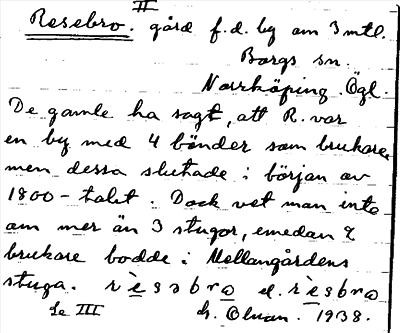 II
Resebro. gård f.d. by om 3 mtl.
Borgs sn.
Norrköping. Ögl.
De gamle ha sagt, att R. var
en by med 4 bönder som brukare
men dessa slutade i början av
1800-talet. Dock vet man inte
om mer än 3 stugor, emedan 2
brukare bodde i Mellangårdens
stuga. rèsəbro el. rèsbro
Se III G. Olsson. 1938.